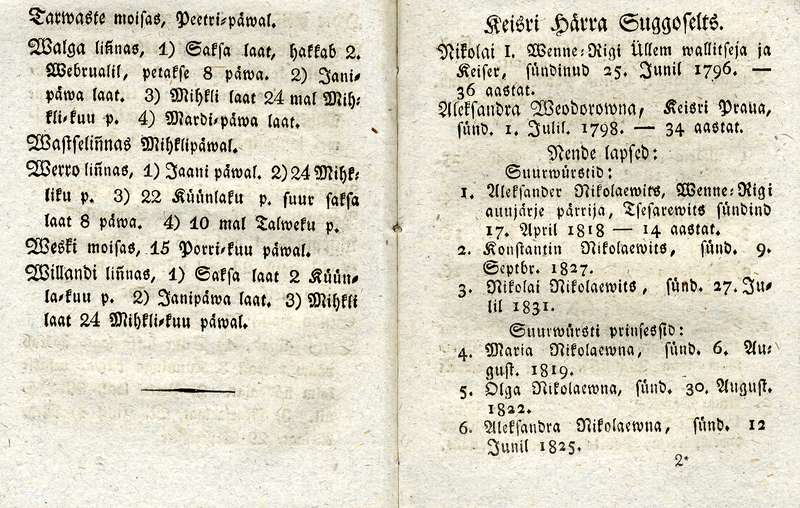 Tarwaste moisas, Peetri-päwal.
Walga lin̄nas, 1) Saksa laat, hakkab 2.
Webrualil, petakse 8 päwa. 2) Jani-
päwa laat. 3) Mihkli laat 24 mal Mih-
kli-kuu p. 4) Mardi-päwa laat.
Wastselin̄nas Mihklipäwal.
Werro lin̄nas, 1) Jaani päwal. 2) 24 Mihk-
liku p. 3) 22 Küünlaku p. suur saksa
laat 8 päwa. 4) 10 mal Talweku p.
Weski moisas, 15 Porri-kuu päwal.
Willandi lin̄nas, 1) Saksa laat 2 Küün-
la-kuu p. 2) Janipäwa laat. 3) Mihkli
laat 24 Mihkli-kuu päwal.
Keisri Härra Suggoselts.
Nikolai I. Wenne-Rigi Üllem wallitseja ja
Keiser, sündinud 25. Junil 1796. —
36 aastat.
Aleksandra Weodorowna, Keisri Praua,
sünd. 1. Julil. 1798. — 34 aastat.
Nende lapsed:
Suurwürstid:
1. Aleksander Nikolaewits, Wenne-Rigi
aunjärje pärrija, Tsesarewits sündind
17. April 1818 — 14 aastat.
2. Konstantin Nikolaewits, sünd. 9.
Septbr. 1827.
3. Nikolai Nikolaewits, sünd. 27. Ju-
lil 1831.
Suurwürsti prinsessid:
4. Maria Nikolaewna, sünd. 6. Au-
gust. 1819.
5. Olga Nikolaewna, sünd. 30. August.
1822.
6. Aleksandra Nikolaewna, sünd. 12
Junil 1825.
2*